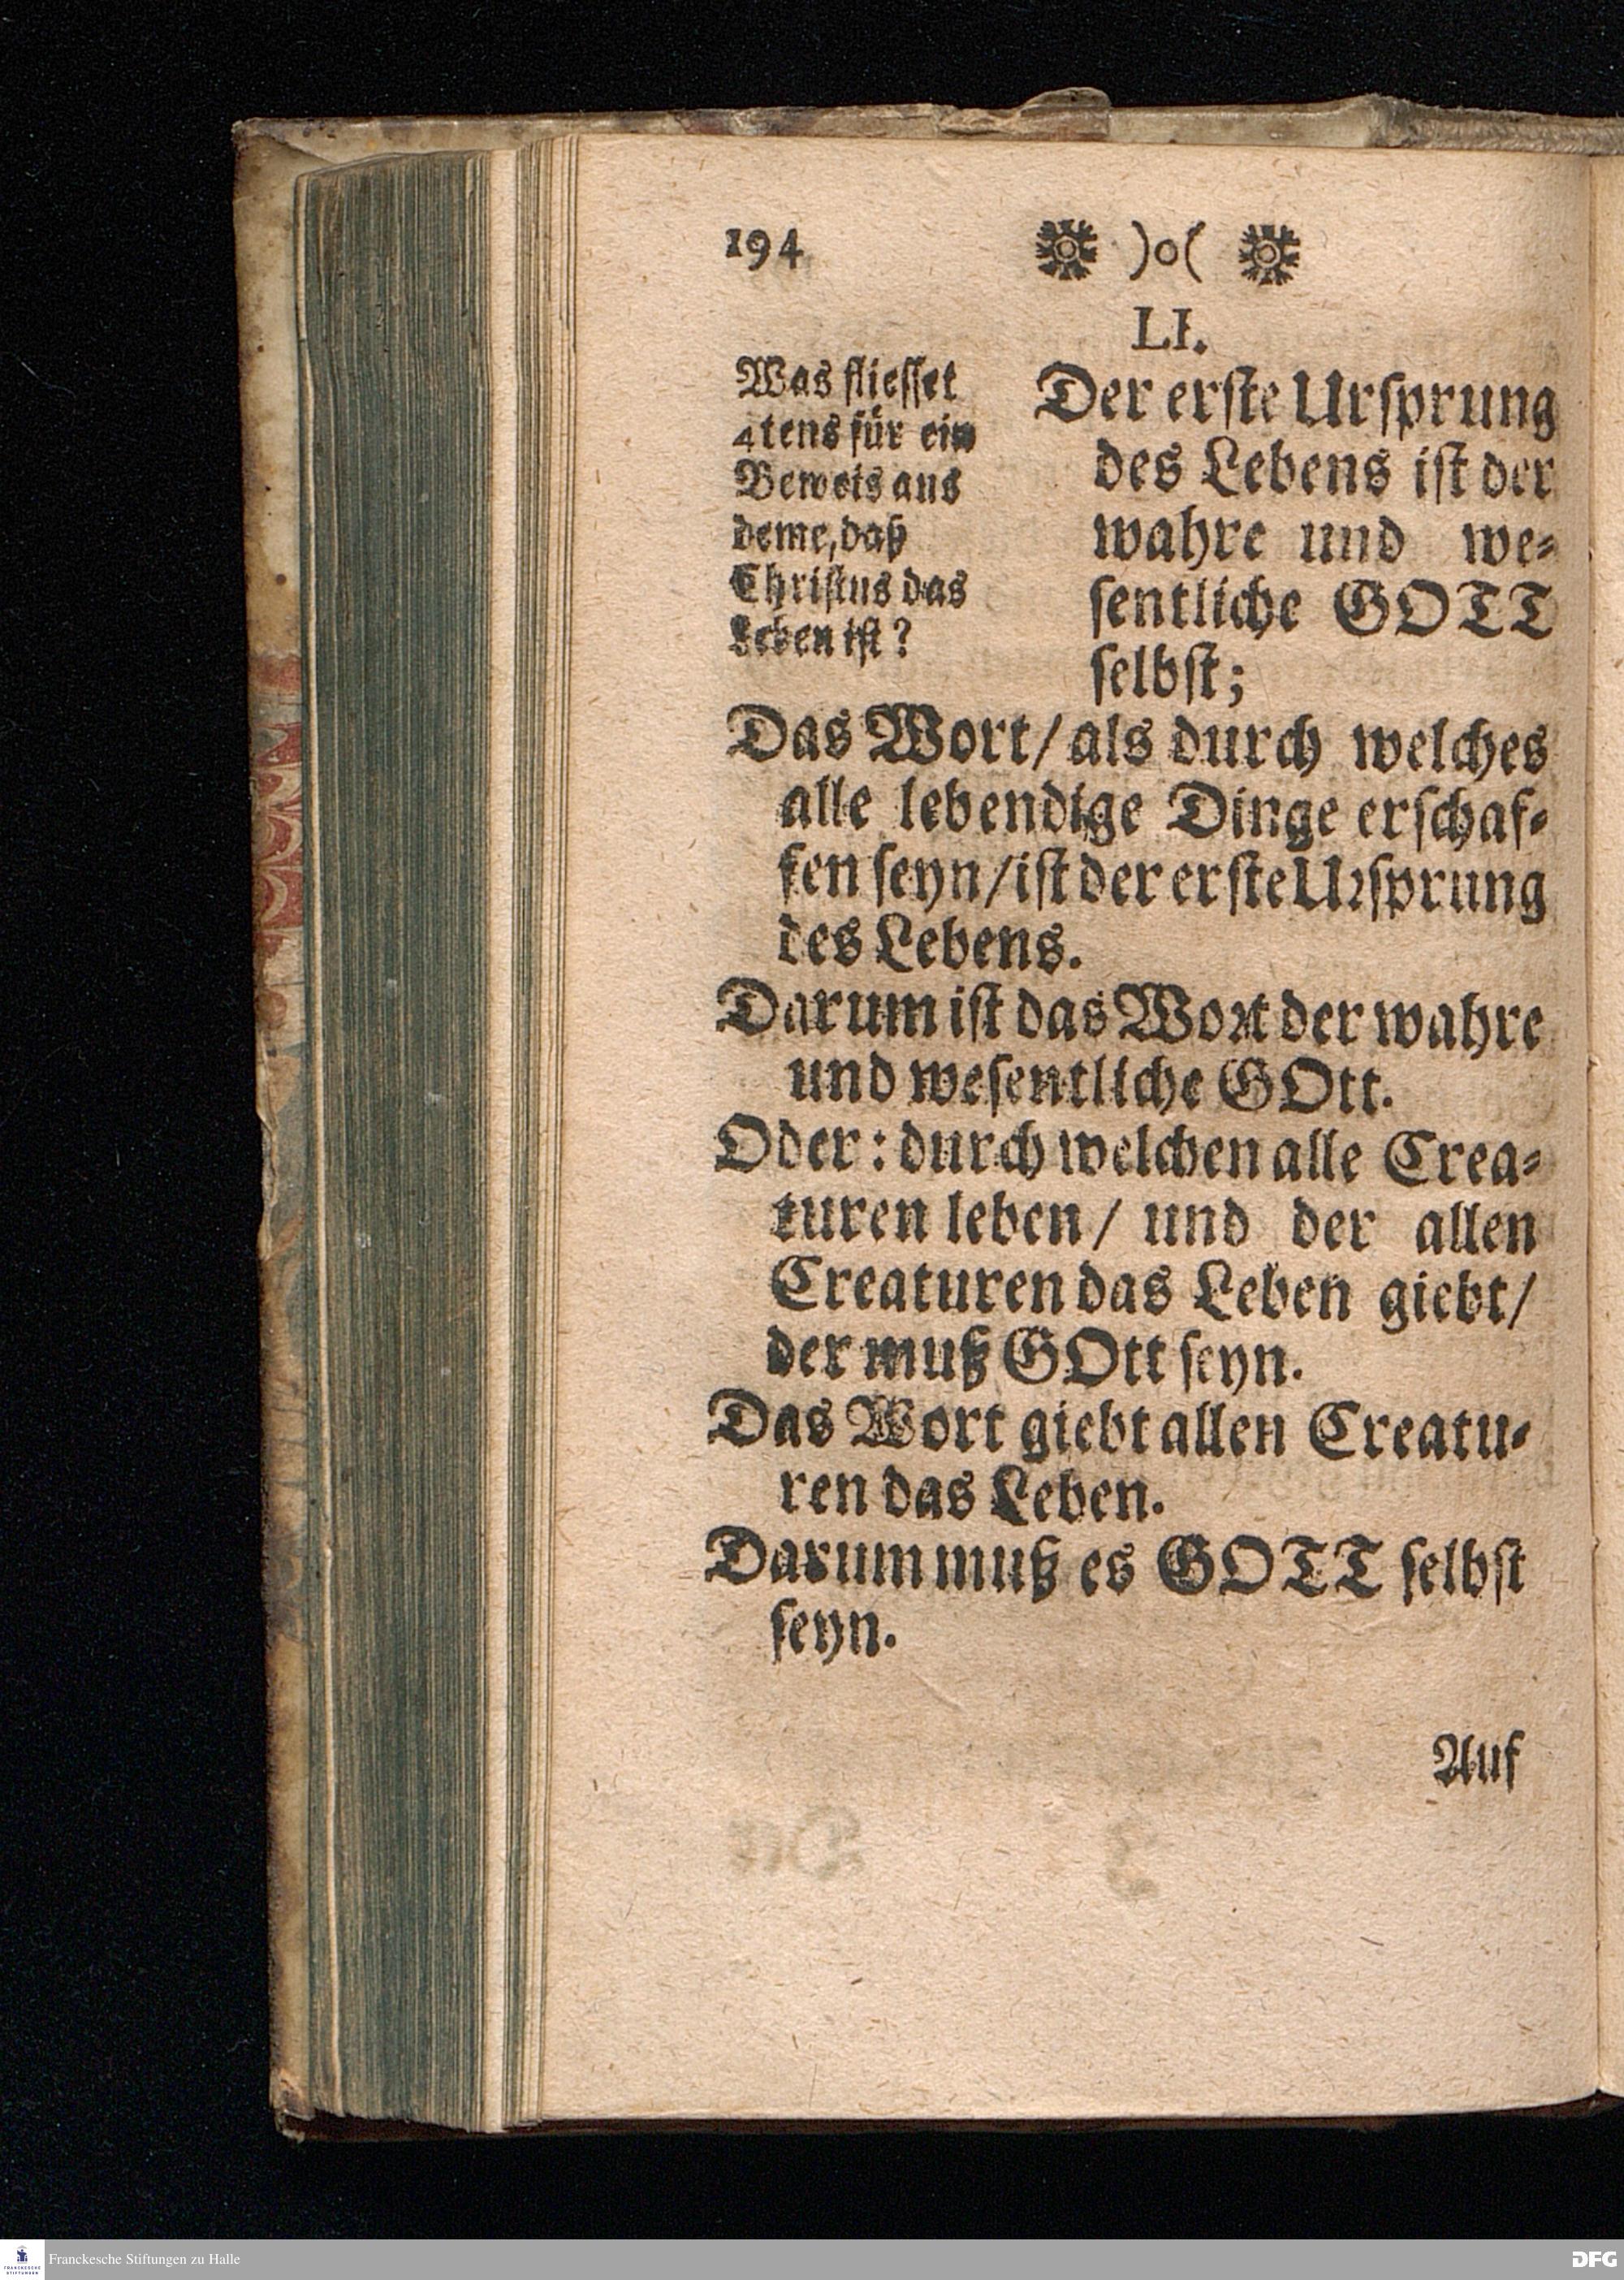 194 )o(
LI.
Was fliesset
4tens für ein
Beweis aus
deme, daß
Christus das
Leben ist?
Der erste Ursprung
des Lebens ist der
wahre und we-
sentliche GOTT
selbst;
Das Wort/ als durch welches
alle lebendige Dinge erschaf-
fen seyn/ ist der erste Ursprung
des Lebens.
Darum ist das Wort der wahre
und wesentliche GOtt.
Oder: durch welchen alle Crea-
turen leben/ und der allen
Creaturen das Leben giebt/
der muß GOtt seyn.
Das Wort giebt allen Creatu-
ren das Leben.
Darum muß es GOTT selbst
seyn.
Auf
FRANCKESCHE
STIFTUNGEN
Franckesche Stiftungen zu Halle
DFG